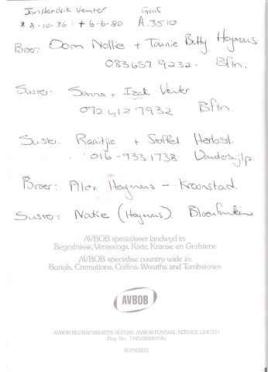 Venter Graf
* 8-10-36 + 6-6-80 A.3510
Broer: Oom Nollie + Tannie Betty Heymans
083657 9232. Bftn.
Suster: Sanna + Izak Venter
072 412 7932 Bftn.
Suster: Raaitjie + Stoffel Herbst.
016-933 1738 Vanderbijlp.
Broer: Alex Heymans - Kroonstad.
Suster: Natie (Heymans) Bloemfontein
AVBOB spesialiseer landwyd in
Begrafnisse, Verassings, Kiste, Kranse en Grafstene
AVBOB specialise country wide in
Burials, Cremations, Coffins, Wreaths and Tombstones
AVBOB